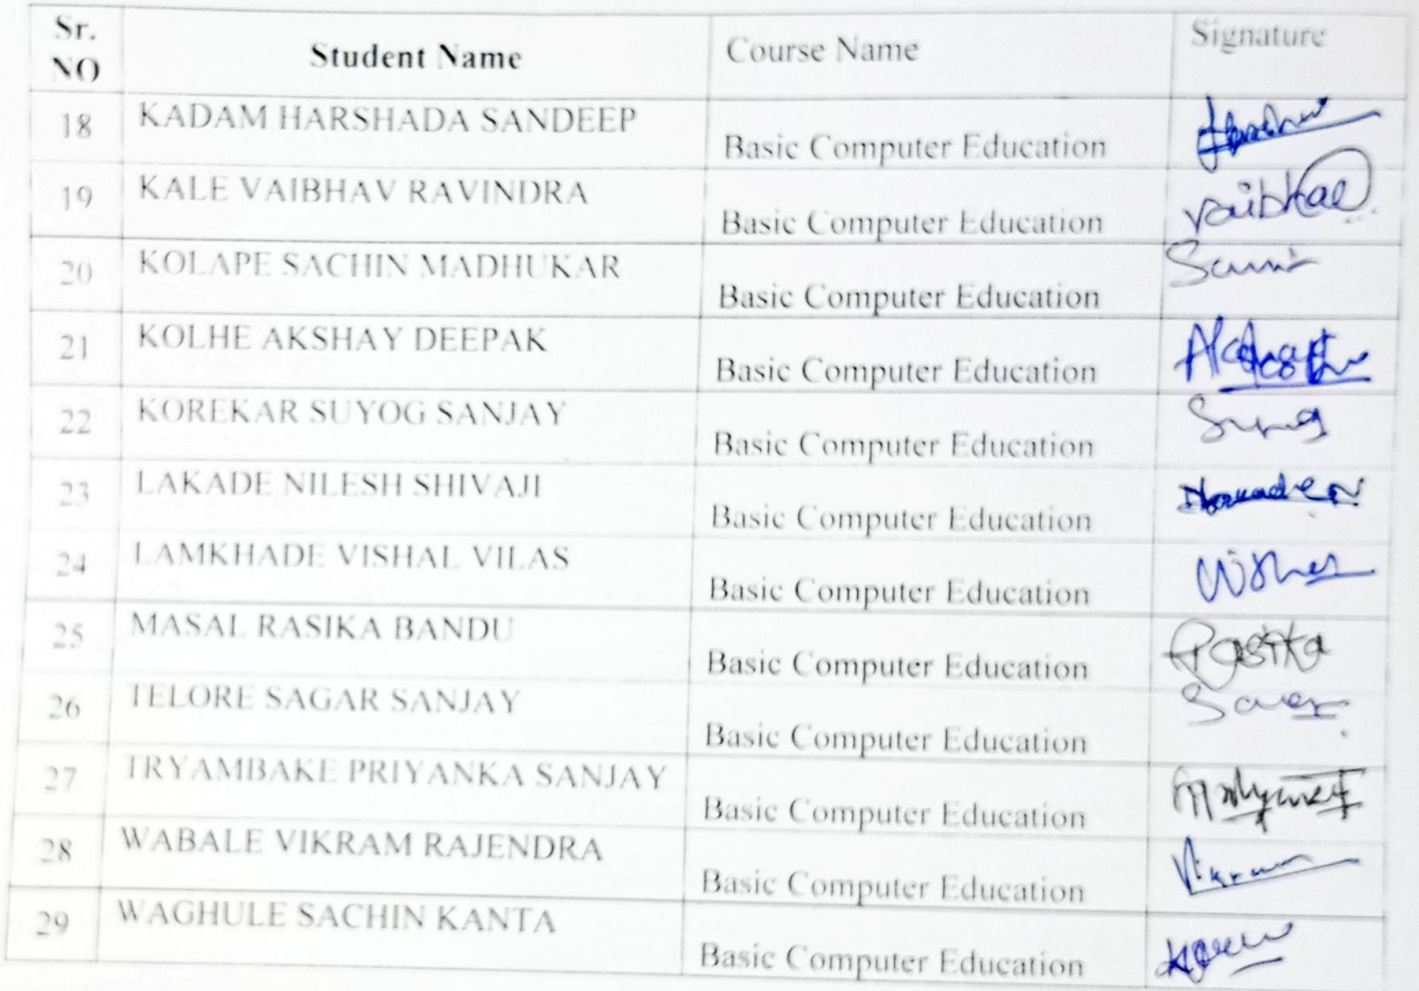 Sr. NO Student Name Course Name Signature
18 KADAM HARSHADA SANDEEP Basic Computer Education
19 KALE VAIBHAV RAVINDRA Basic Computer Education vaibhav
20 KOLAPE SACHIN MADHUKAR Basic Computer Education
21 KOLHE AKSHAY DEEPAK Basic Computer Education
22 KOREKAR SUYOG SANJAY Basic Computer Education
23 LAKADE NILESH SHIVAJI Basic Computer Education
24 LAMKHADE VISHAL VILAS Basic Computer Education
25 MASAL RASIKA BANDU Basic Computer Education Rasika
26 TELORE SAGAR SANJAY Basic Computer Education
27 TRYAMBAKE PRIYANKA SANJAY Basic Computer Education
28 WABALE VIKRAM RAJENDRA Basic Computer Education
29 WAGHULE SACHIN KANTA Basic Computer Education